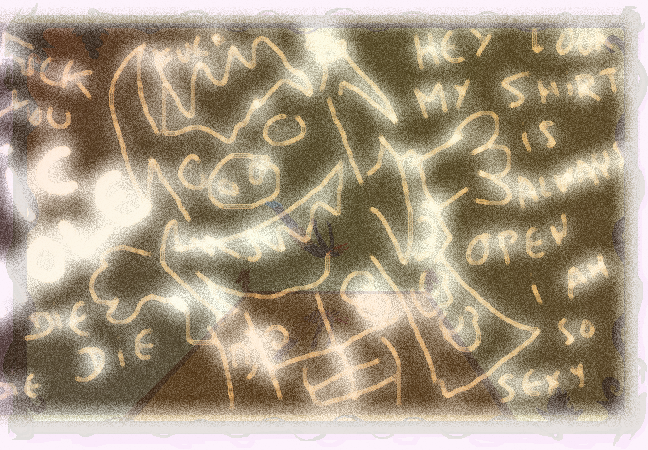 YOU
DIE
DIE
HEY LOOK
MY SHIRT
IS
ALWAYS
OPEN
I AM
SO
SEXY